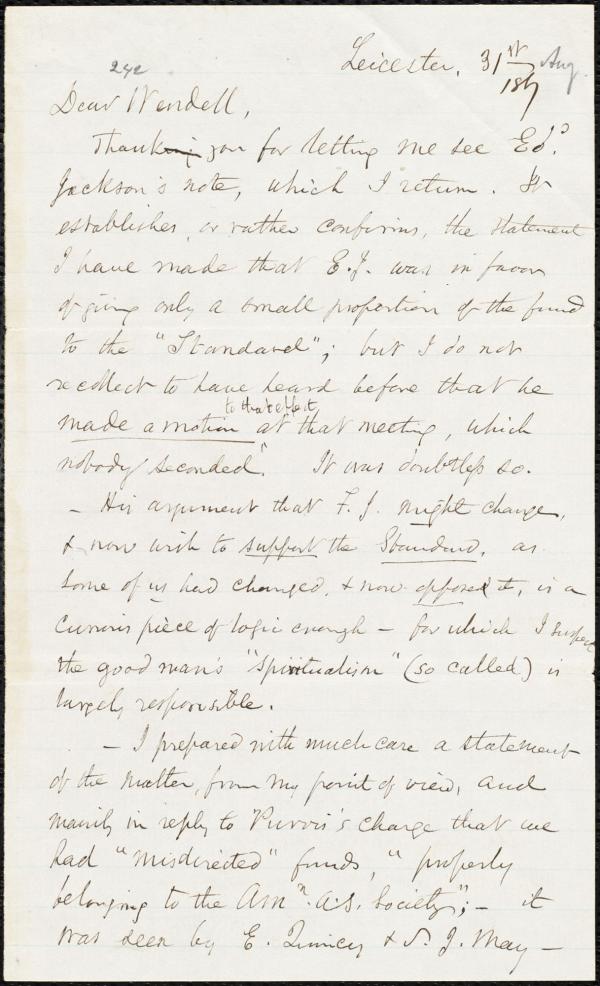 242
Leicester, 31st Aug.
186
Dear Wendell,
Thanking you for letting me see Ed.
Jackson's note, which I return. It
establishes, or rather confirms, the statement
I have made that E.J. was in favor
of giving only a small proportion of the fund
to the "Standard"; but I do not
recollect to have heard before that he
to that effect
made a motion at that meeting, which
nobody seconded. It was doubtless so.
- His argument that F.J. might change,
& now wish to support the Standard, as
some of us had changed, & now oppose it, is a
curious piece of logic enough - for which I suspect
the good man's "spiritualism" (so called) is
largely responsible.
- I prepared with much care a statement
of the matter, from my point of view, and
mainly in reply to Purvis's charge that we
had "misdirected" funds, "properly
belonging to the Amn. A.S. Society"; - it
was seen by E. Quincy & S. J. May -